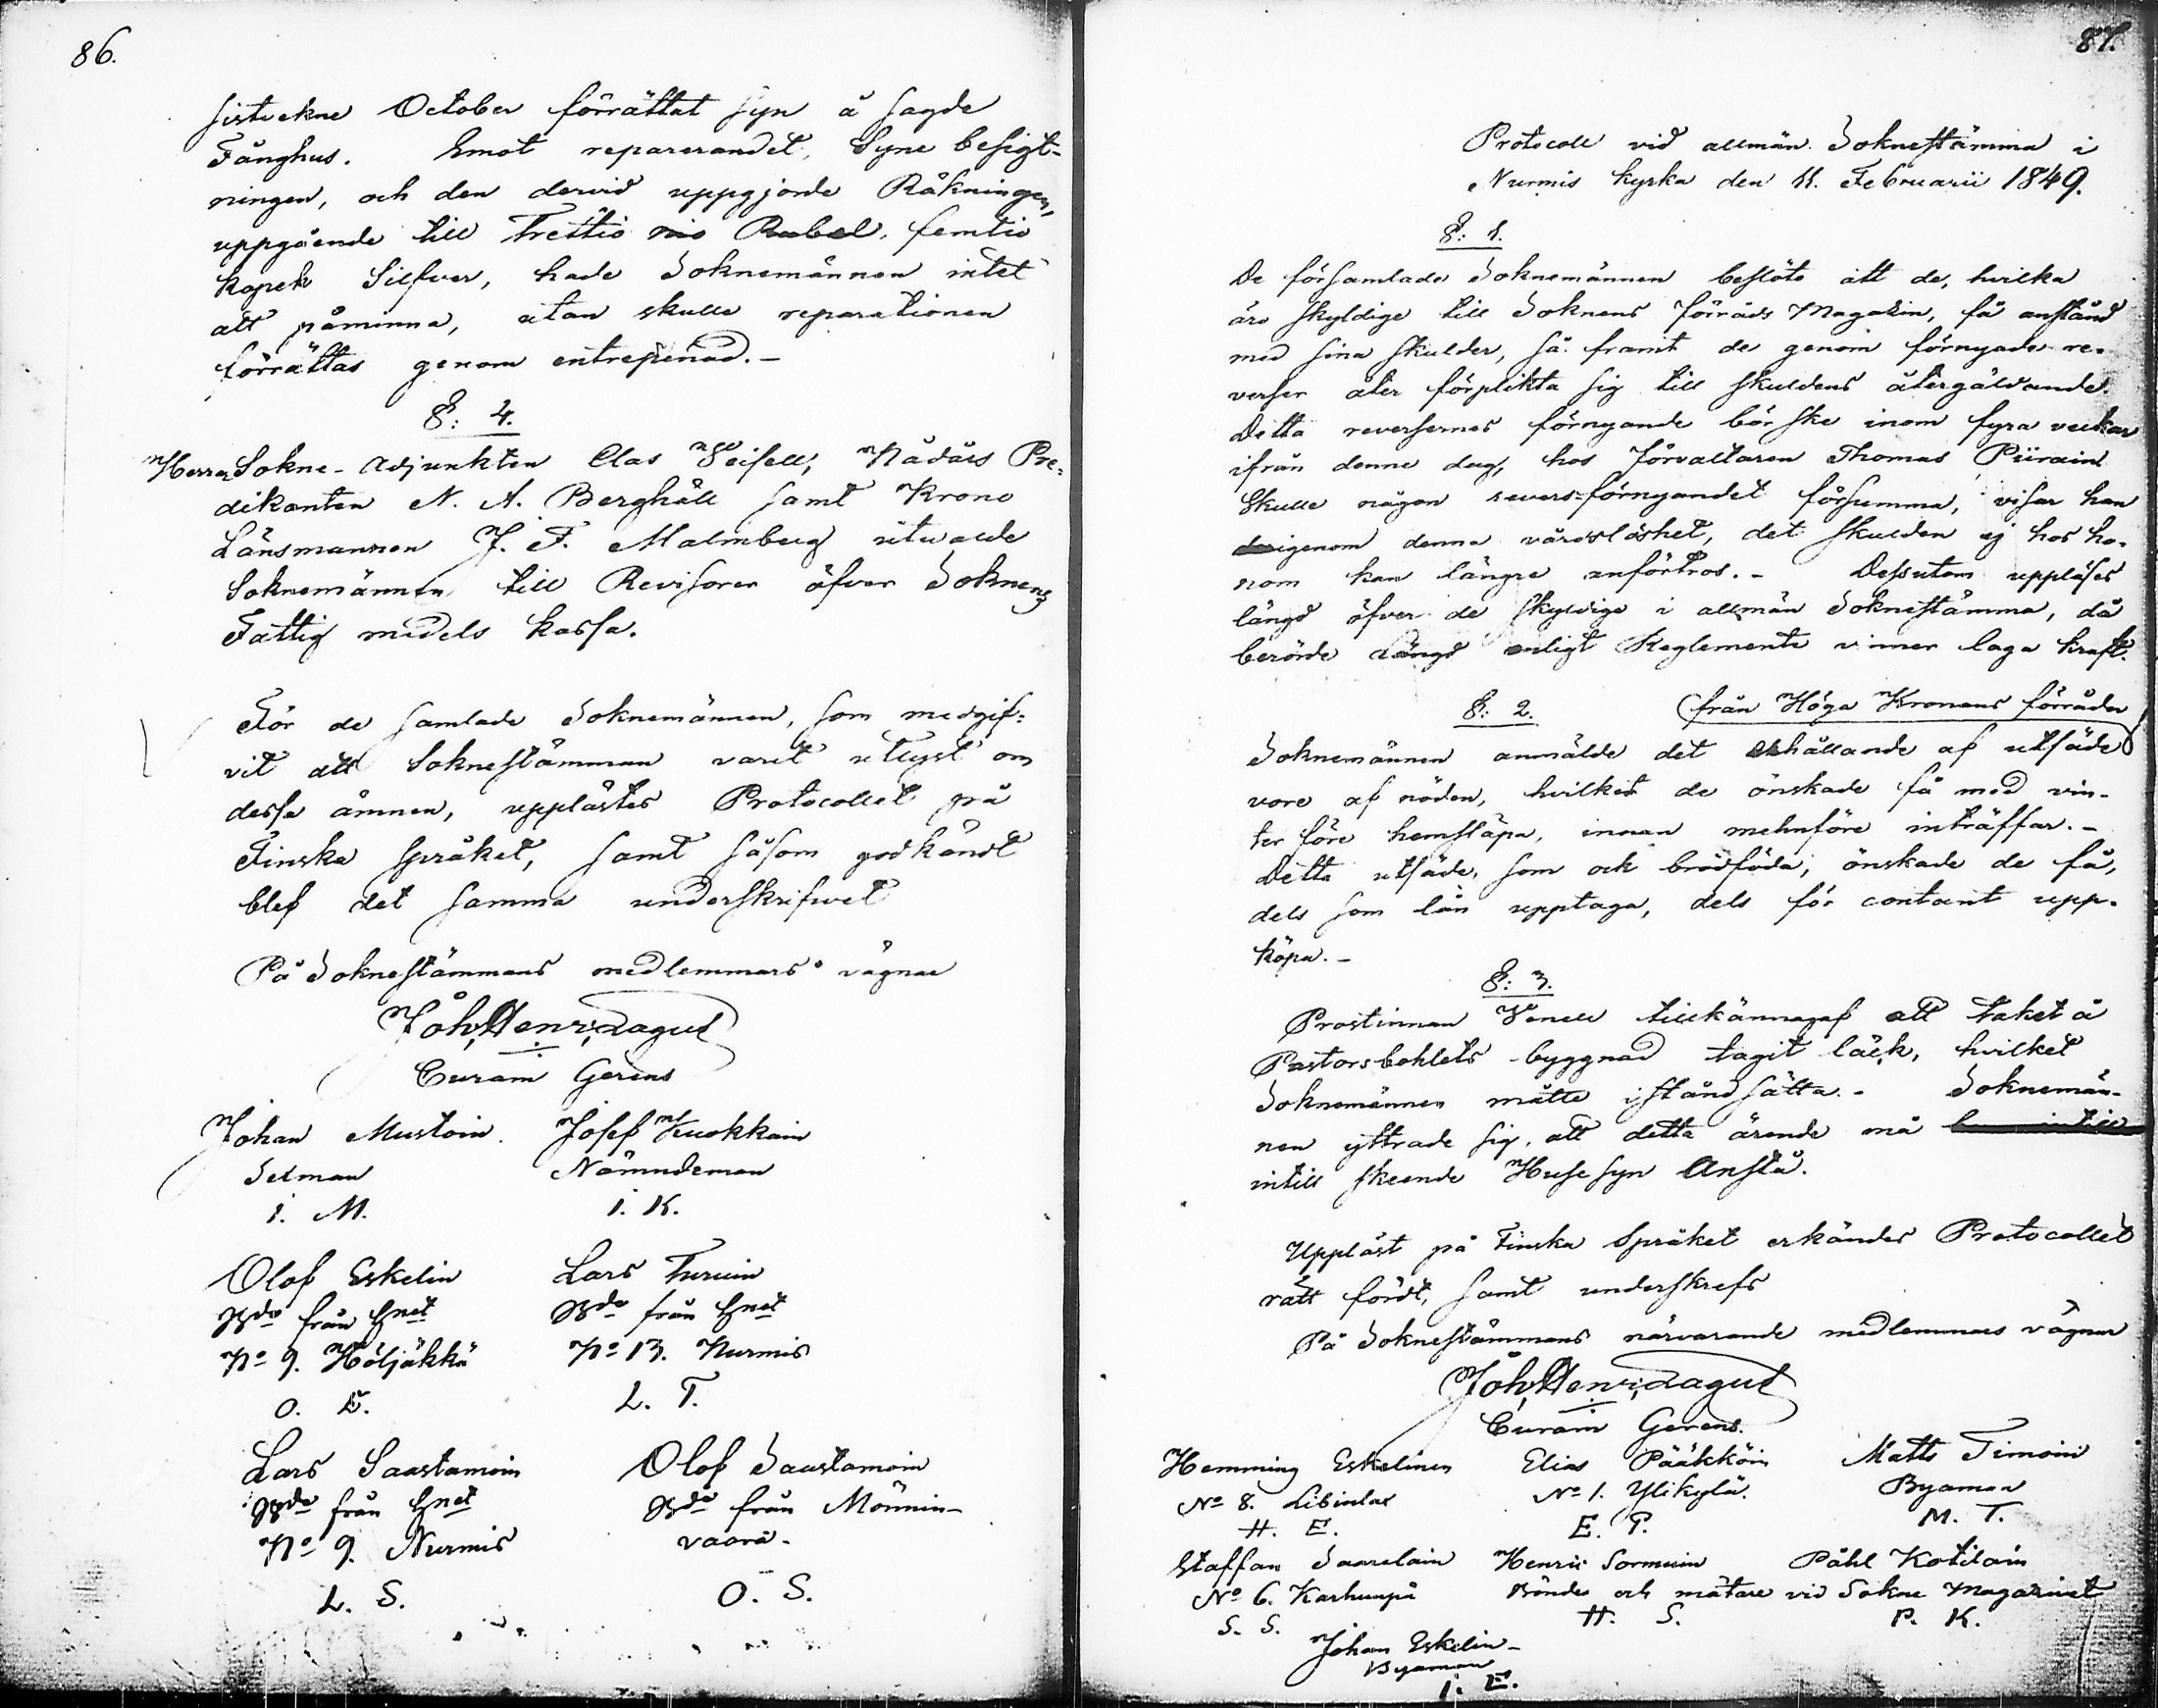 86.
sistvekne October förrättat syn å sagde
Fånghus. Emot reparerandet, Syne besigt-
ningen, och den dervid uppgjorde Räkningen,
uppgående till Trettio nio Rubel, femtio
kopek Silfver, hade Soknemännen intet
att påminna, utan skulle reparationen
förrättas genom entrepenad.-
§: 4.
Herrar Sokne-Adjunkten Clas Weisell, Nådårs Pre-
dikanten N. A. Berghäll samt Krono
Länsmannen J. F. Malmberg utvalde
Soknemännen till Revisorer öfver Soknens
Fattig medels kassa.
För de samlade Soknemännen, som medgif-
vit att Soknestämman varit utlyst om
dessa ämnen, upplästes Protocollet på
Finska språket, samt såsom godkändt
blef det samma underskrifvet
På Soknestämmans medlemmars vägnar
Joh, Henr, Lagus
Curam Gerens
Johan Mustoin. Josef Kuokkain
Sexman Nämndeman
I. M. I. K.
Olof Eskelin Lars Turuin
Bde från Hnet Bde från Hnet
No 9. Höljäkkä No 13. Nurmis
O. E. L. T.
Lars Saastamoin Olof Saastamoin
Bde från Hnet Bde från Mönnin-
No 9. Nurmis vaara.
L. S. O. S.
87.
Protocoll vid allmän Soknestämma i
Nurmis kyrka den 11. Februarii 1849.
§: 1.
De församlade Soknemännen beslöto att de, hvilka
äro skyldige till Soknens förråds Magazin, få anstånd
med sina skulder, så framt de genom förnyade re-
verser åter förplikta sig till skuldens återgäldande.
Detta reversernes förnyande bör ske inom fyra veckor
ifrån denne dag, hos förvaltaren Thomas Piirain
Skulle någon revers-förnyandet försumma, visar han
derigenom denna vårdslöshet, det skulden ej hos ho-
nom kan längre anförtros.- Dessutom uppläses
längd öfver de skyldige i allmän Soknestämma, då
berörde längd enligt Reglemente vinner laga kraft.
§: 2. från Höga Kronans förråder
Soknemännen anmälde det erhållande af utsäde
vore af nöden, hvilket de önskade få med vin-
ter före hemsläpa, innan mehnföre inträffar.-
Detta utsäde, som ock brödföda, önskade de få,
dels som lån upptaga, dels för contant upp-
köpa.-
§: 3.
Prostinnan Wenell tillkännagaf att taket å
Pastorsbohlets-byggnad tagit läck, hvilket
Soknemännen måtte iståndsätta.- Soknemän-
nen yttrade sig, att detta ärende må
intill skeende Husesyn Anstå.
Uppläst på Finska Språket erkändes Protocollet
rätt fördt, samt underskrefs
På Soknestämmans närvarande medlemmars vägnar
Joh, Henr, Lagus
Curam Gerens.
Hemming Eskelinen Elias Pääkköin Matts Timoin
No 8. Libinlax No 1. Ylikylä. Byaman
H. E. E. P. M. T.
Staffan Saarelain Henric Sormuin Påhl Kotilain
No 6. Karhunpä Bönder och mätare vid Sokne Magazinet
S. S. H. S. P. K.
Johan Eskelin-
Byaman
I. E.